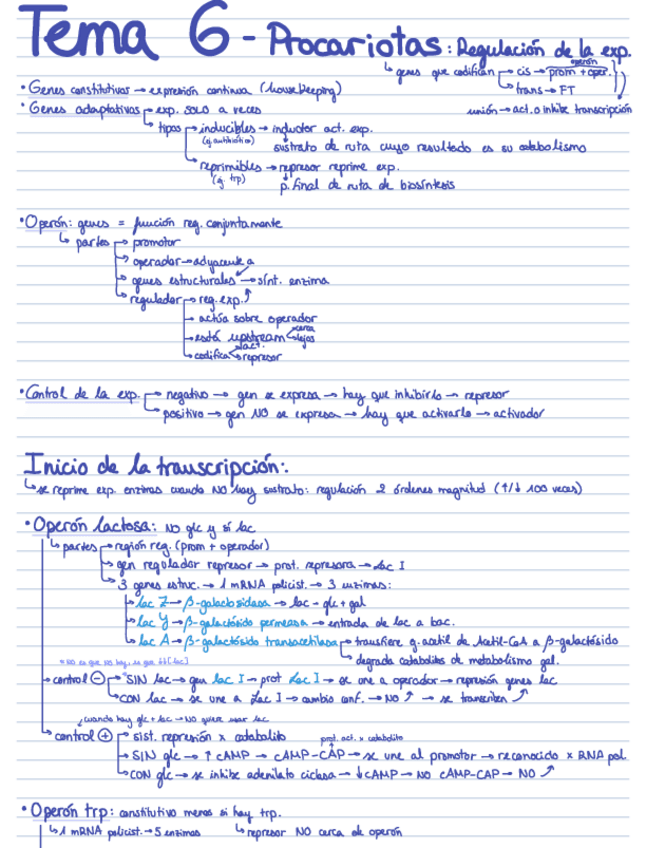 Tema 6 - Procariotas: Regulación de la exp.
↳ genes que codifican → cis → prom + oper. operón
→ trans → FT
unión → act. o inhibe transcripción
• Genes constitutivos → expresión continua (housekeeping)
• Genes adaptativos → exp. SOLO a veces
↳ tipos → inducibles → inductor act. exp.
sustrato de ruta cuyo resultado es su catabolismo
→ reprimibles → represor reprime exp.
(ej. trp) p. final de ruta de biosíntesis
• Operón: genes = función reg. conjuntamente
↳ partes → promotor
→ operador → adyacente a
→ genes estructurales → sínt. enzima
→ regulador → reg. exp.
→ actúa sobre operador
→ está upstream cerca lejos
→ codifica act. represor
• Control de la exp. → negativo → gen se expresa → hay que inhibirlo → represor
→ positivo → gen NO se expresa → hay que activarlo → activador
Inicio de la transcripción:
↳ se reprime exp. enzimas cuando NO hay sustrato: regulación 2 órdenes magnitud (↑/↓ 100 veces)
• Operón lactosa: NO glc y sí lac
↳ partes → región reg. (prom + operador)
→ gen regulador represor → prot. represora → Lac I
→ 3 genes estruc. → 1 mRNA policist. → 3 enzimas:
→ lac Z → β-galactosidasa → lac → glc + gal
→ lac Y → β-galactósido permeasa → entrada de lac a bac.
→ lac A → β-galactósido transacetilasa → transfiere g. acetil de Acetil-CoA a β-galactósido
→ degrada catabolitos de metabolismo gal.
* no es que no hay, es que ↓↓[lac]
→ control ⊖ → *SIN lac → gen lac I → prot Lac I → se une a operador → represión genes lac
→ CON lac → se une a Lac I → cambio conf. → NO ↑ → se transcriben
cuando hay glc + lac → NO quiere usar lac
→ control ⊕ → sist. represión x catabolito
prot. act. x catabolito
→ SIN glc → ↑ cAMP → cAMP-CAP → se une al promotor → reconocido x RNA pol.
→ CON glc → se inhibe adenilato ciclasa → ↓cAMP → NO cAMP-CAP → NO
• Operón trp: constitutivo menos si hay trp.
↳ 1 mRNA policist. → 5 enzimas ↳ represor NO cerca de operón